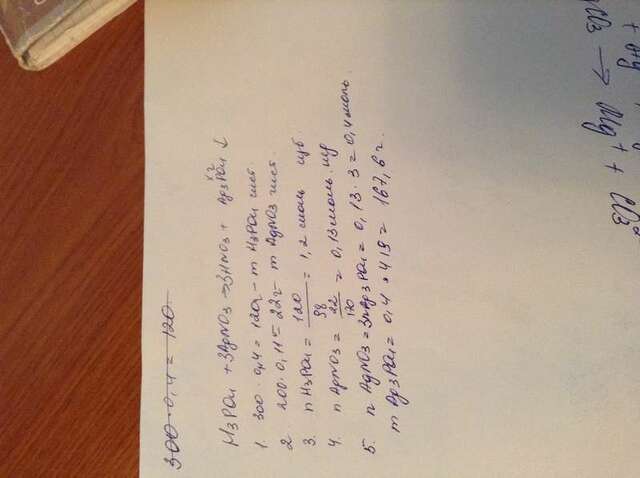 300 · 0,4 = 120
H₃PO₄ + 3AgNO₃ → 3HNO₃ + Ag₃PO₄ ↓
x г
1. 300 · 0,4 = 120г – m H₃PO₄ чист.
2. 200 · 0,11 = 22г – m AgNO₃ чист.
3. n H₃PO₄ = 120/98 = 1,2 моль изб.
4. n AgNO₃ = 22/170 = 0,13 моль.
5. n AgNO₃ = 3nAg₃PO₄ = 0,13 · 3 = 0,4 моль.
m Ag₃PO₄ = 0,4 · 419 = 167,6 г.
Cl₃ → Mg⁺ + Cl₃